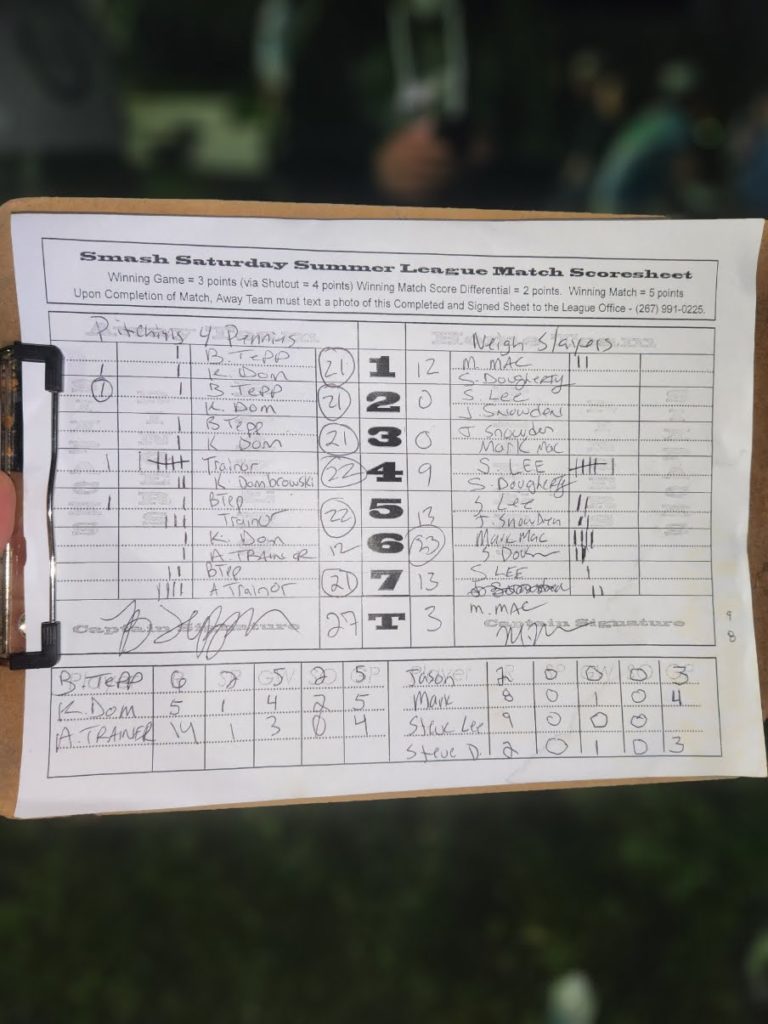 Smash Saturday Summer League Match Scoresheet
Winning Game = 3 points (via Shutout = 4 points) Winning Match Score Differential = 2 points. Winning Match = 5 points
Upon Completion of Match, Away Team must text a photo of this Completed and Signed Sheet to the League Office - (267) 991-0225.
Pitchins 4 Pennies Neigh Slayers
B. Tepp M. MAC
K. Dom 21 1 12 S. Dougherty
B Tepp S. Lee
K. Dom 21 2 0 J. Snowden
B Tepp J Snowden
K Dom 21 3 0 Mark Mac
Trainor S. LEE
K Dombrowski 22 4 9 S. Dougherty
BTep S Lee
Trainor 22 5 13 J. Snowdren
K. Dom Mark Mac
A TRAINOR 12 6 23
BTep S. LEE
A Trainor 21 7 13
M. MAC
Captain Signature 27 T 3 Captain Signature
9
8
B. TEPP 6 2 5 2 5 Jason 2 0 0 0 3
K. Dom 5 1 4 2 5 Mark 8 0 1 0 4
A. TRAINER 14 1 3 0 4 Steve Lee 9 0 0 0
Steve D. 2 0 1 0 3